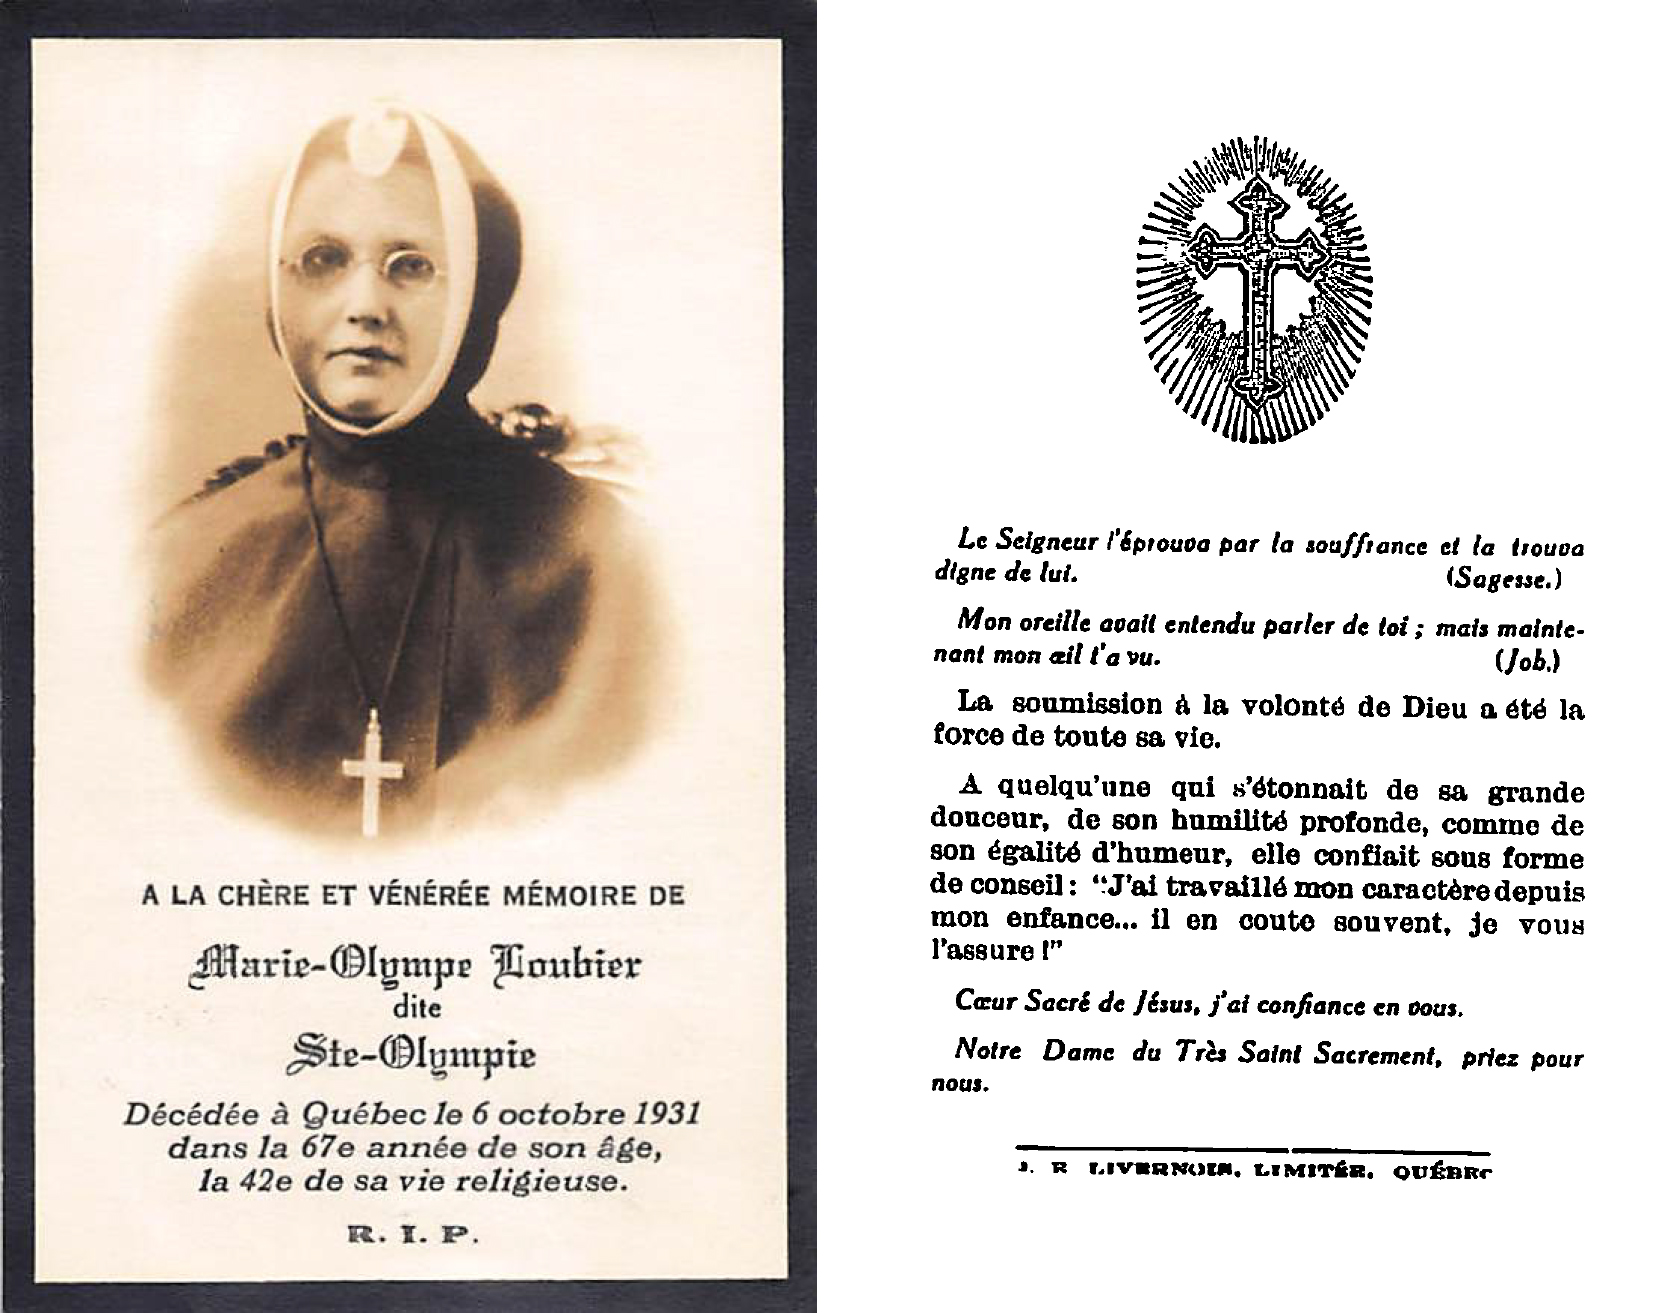 A LA CHÈRE ET VÉNÉRÉE MÉMOIRE DE
Marie-Olympe Loubier
dite
Ste-Olympie
Décédée à Québec le 6 octobre 1931
dans la 67e année de son âge,
la 42e de sa vie religieuse.
R. I. P.
Le Seigneur l'éprouva par la souffrance et la trouva
digne de lui. (Sagesse.)
Mon oreille avait entendu parler de toi ; mais mainte-
nant mon œil t'a vu. (Job.)
La soumission à la volonté de Dieu a été la
force de toute sa vie.
A quelqu'une qui s'étonnait de sa grande
douceur, de son humilité profonde, comme de
son égalité d'humeur, elle confiait sous forme
de conseil : "J'ai travaillé mon caractère depuis
mon enfance... il en coute souvent, je vous
l'assure !"
Cœur Sacré de Jésus, j'ai confiance en vous.
Notre Dame du Très Saint Sacrement, priez pour
nous.
J. E LIVERNOIS, LIMITÉE, QUÉBEC